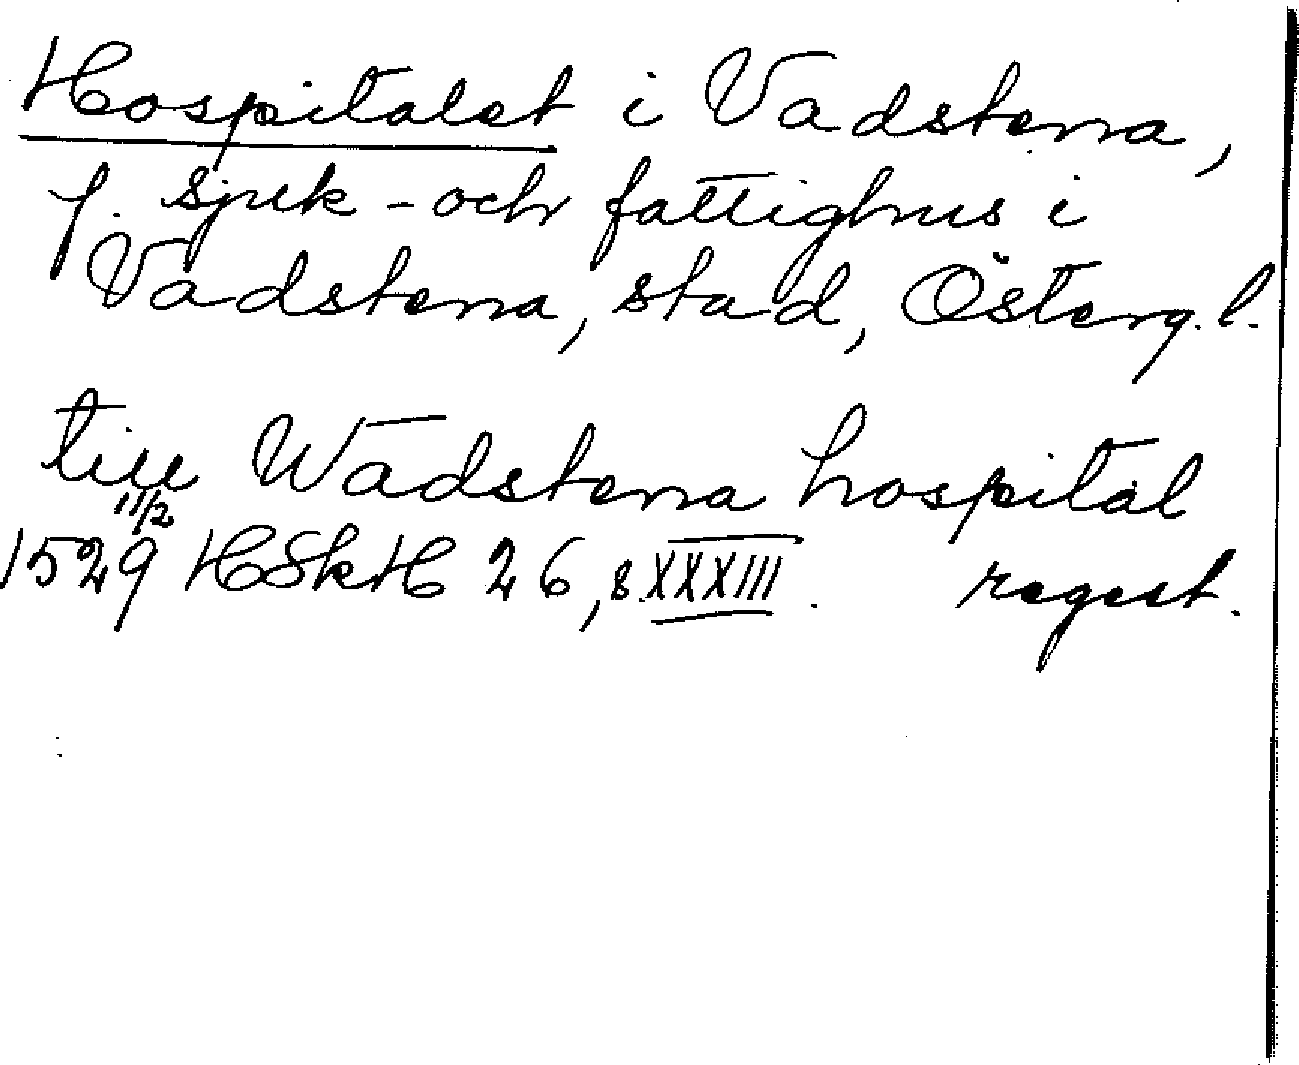 Hospitalet i Vadstena,
f. sjuk- och fattighus i
Vadstena, stad, Österg. l.
till Wadstena hospital
11/2
1529 HSkH 26, s. XXXIII. regest.